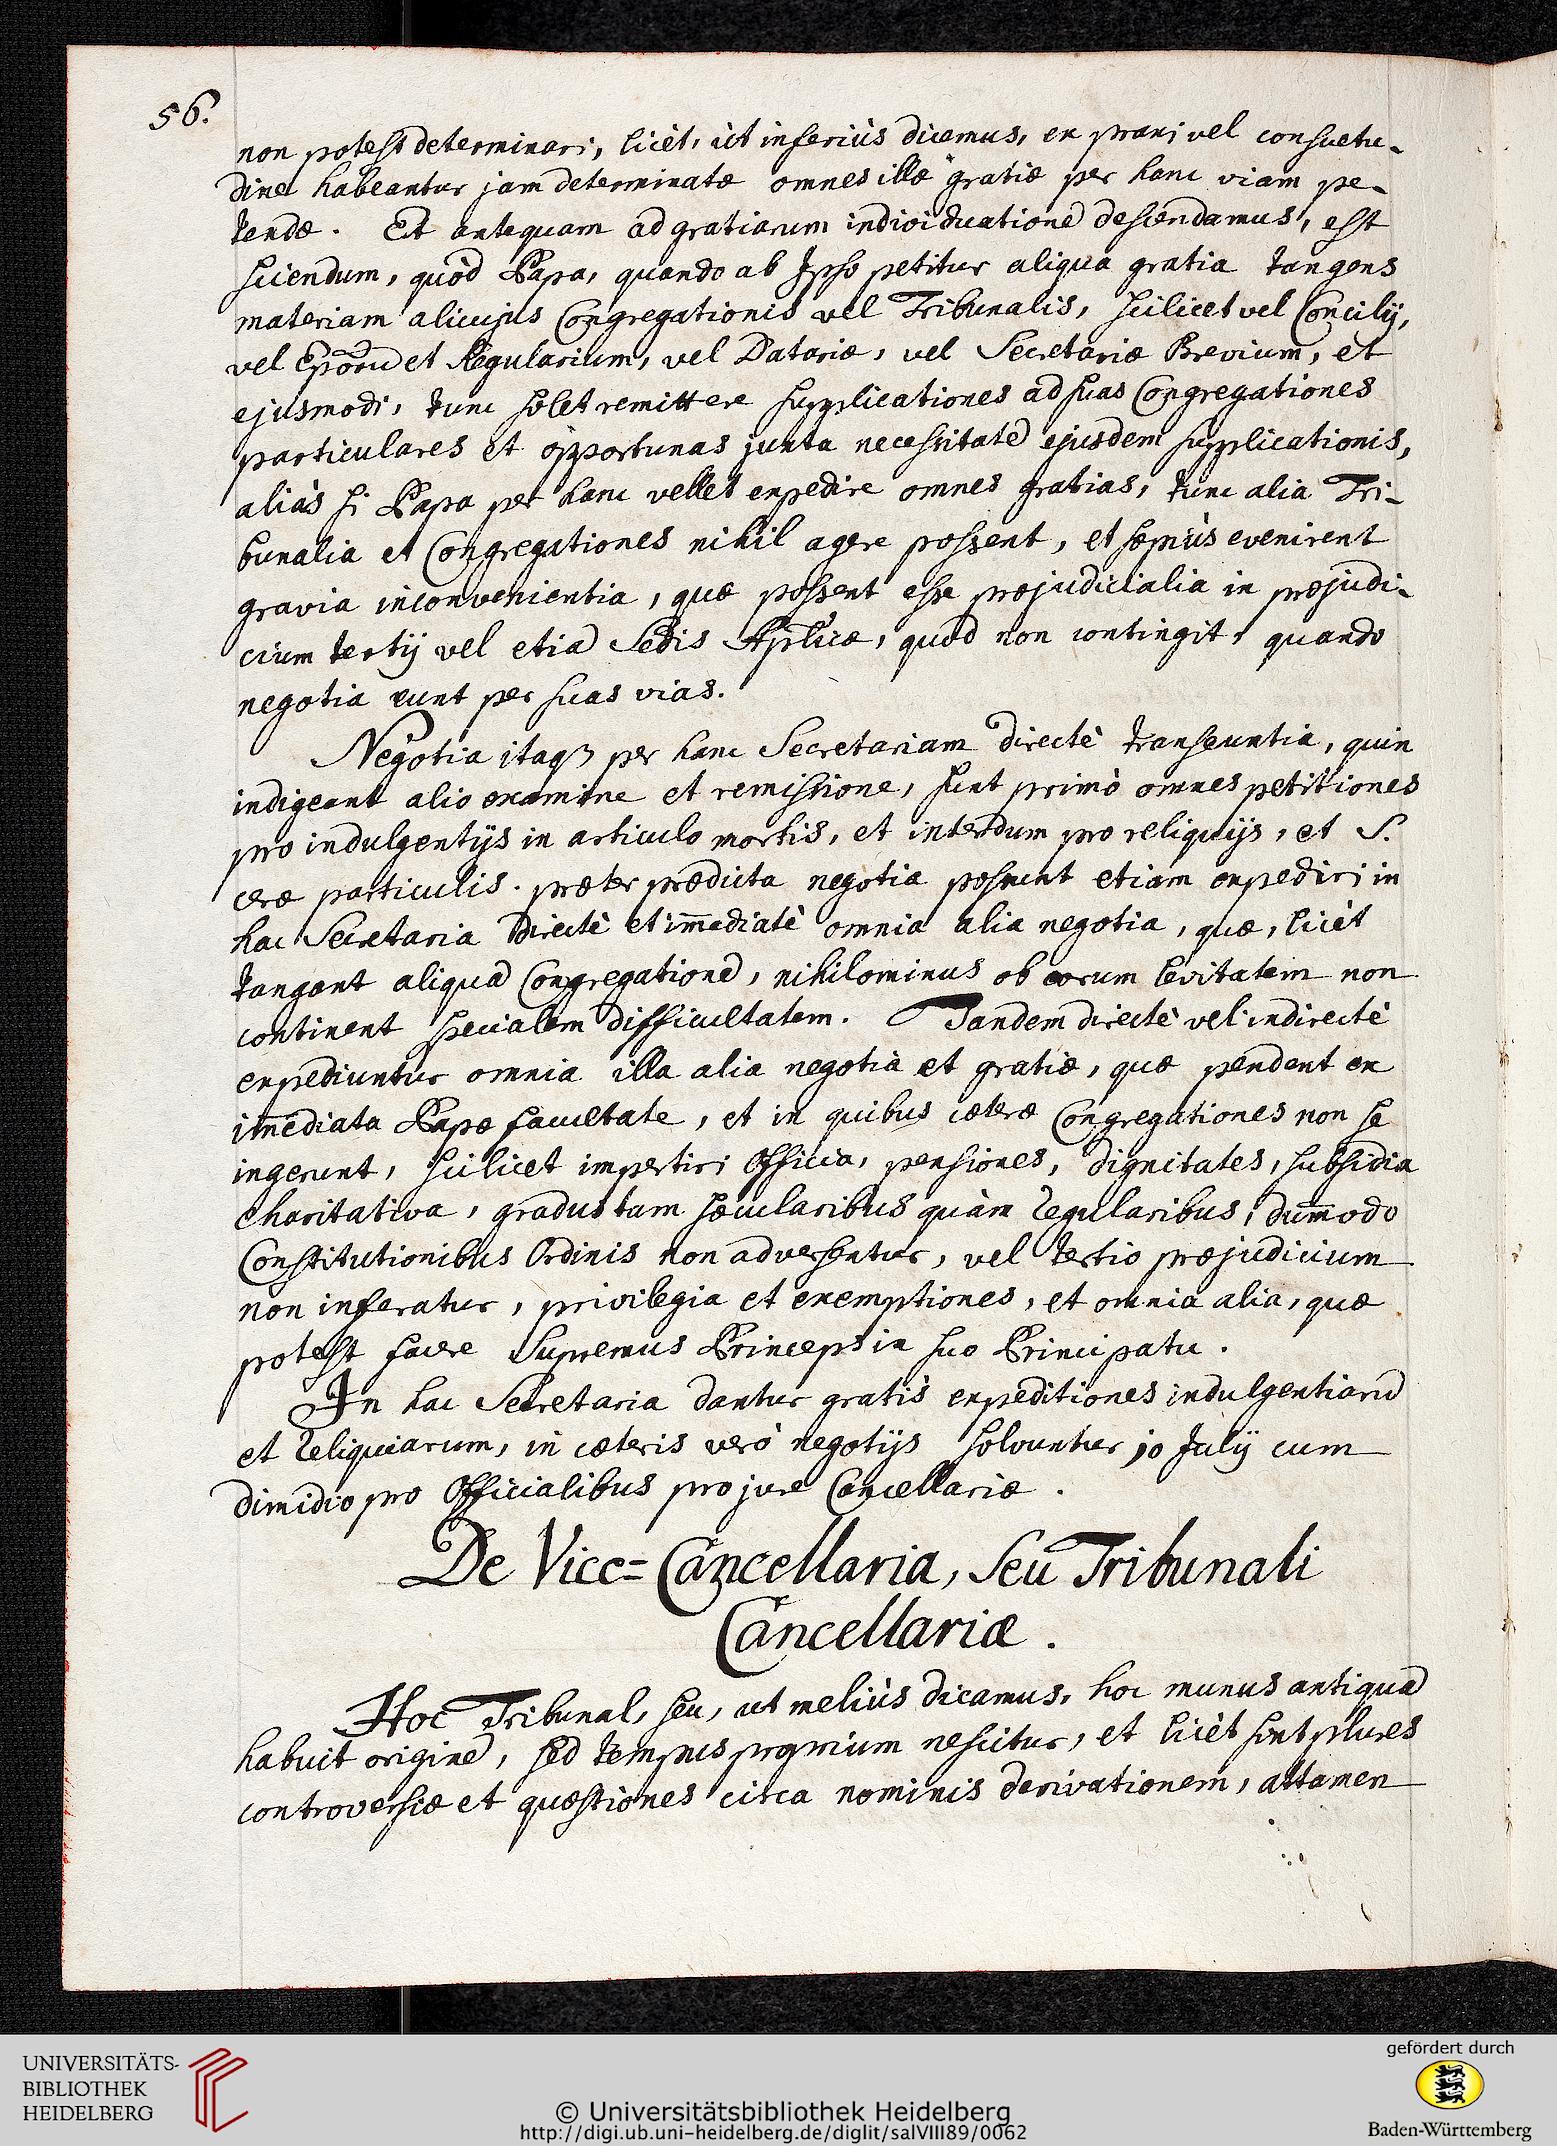 56.
non potest determinari, licèt, ùt inferiùs dicemus, ex praxi vel consuetu-
dine habeantur jam determinatæ omnes illæ gratiæ per hanc viam pe-
tendæ. Et antequam ad gratiarum individuatione descendamus, est
sciendum, quòd Papa, quando ab Ipso petitur aliqua gratia tangens
materiam alicujus Congregationis vel Tribunalis, scilicet vel Concilij,
vel Eporu et Regularium, vel Datariæ, vel Secretariæ Brevium, et
ejusmodi, tunc solet remittere supplicationes ad suas Congregationes
particulares et opportunas juxta necessitate ejusdem supplicationis,
aliàs si Papa per hanc vellet expedire omnes gratias, tunc alia Tri-
bunalia et Congregationes nihil agere possent, et sæpiùs evenirent
gravia inconvenientia, quæ possent esse præjudicialia in præjudi-
cium tertij vel etia Sedis Aplicæ, quod non contingit, quando
negotia eunt per suas vias.
Negotia itaqꝫ per hanc Secretariam directè transeuntia, quin
indigeant alio examine et remissione, sunt primò omnes petitiones
pro indulgentijs in articulo mortis, et interdum pro reliquijs, et S.
ceræ particulis. præter prædicta negotia possunt etiam expediri in
hac Secretaria directè et im̄ediatè omnia alia negotia, quæ, licèt
tangant aliqua Congregatione, nihilominus ob eorum levitatem non
continent specialem difficultatem. Tandem directè vel indirectè
expediuntur omnia illa alia negotia et gratiæ, quæ pendent ex
im̄ediata Papæ facultate, et in quibus cæteræ Congregationes non se
ingerunt, scilicet impertiri Officia, pensiones, dignitates, subsidia
charitativa, gradus tam sæcularibus quàm regularibus, dum̄odo
Constitutionibus Ordinis non adversentur, vel tertio præjudicium
non inferatur, privilegia et exemptiones, et omnia alia, quæ
potest facere Supremus Princeps in suo Principatu.
In hac Secretaria dantur gratis expeditiones indulgentiaru
et reliquiarum, in cæteris verò negotijs solvuntur 10 Julij cum
dimidio pro Officialibus pro jure Cancellariæ.
De Vice=Cancellaria, seu Tribunali
Cancellariæ.
Hoc Tribunal, seu, ut meliùs dicamus, hoc munus antiqua
habuit origine, sed tempus proprium nescitur, et licèt sint plures
controversiæ et quæstiones circa nominis derivationem, attamen
UNIVERSITÄTS-
BIBLIOTHEK
HEIDELBERG
© Universitätsbibliothek Heidelberg
http://digi.ub.uni-heidelberg.de/diglit/salVIII89/0062
gefördert durch
Baden-Württemberg